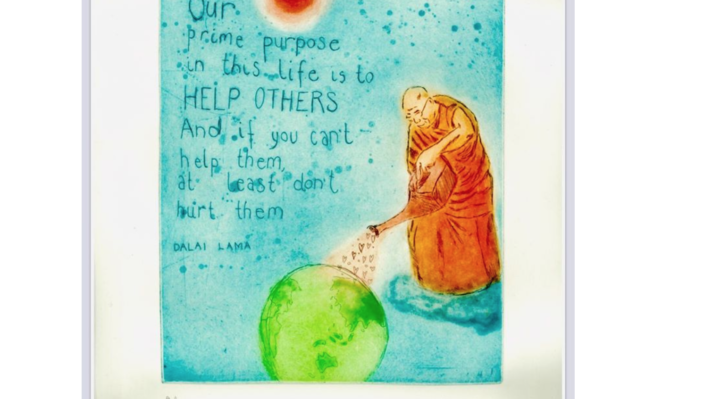 Our
prime purpose
in this life is to
HELP OTHERS
And if you can't
help them,
at least don't
hurt them
DALAI LAMA